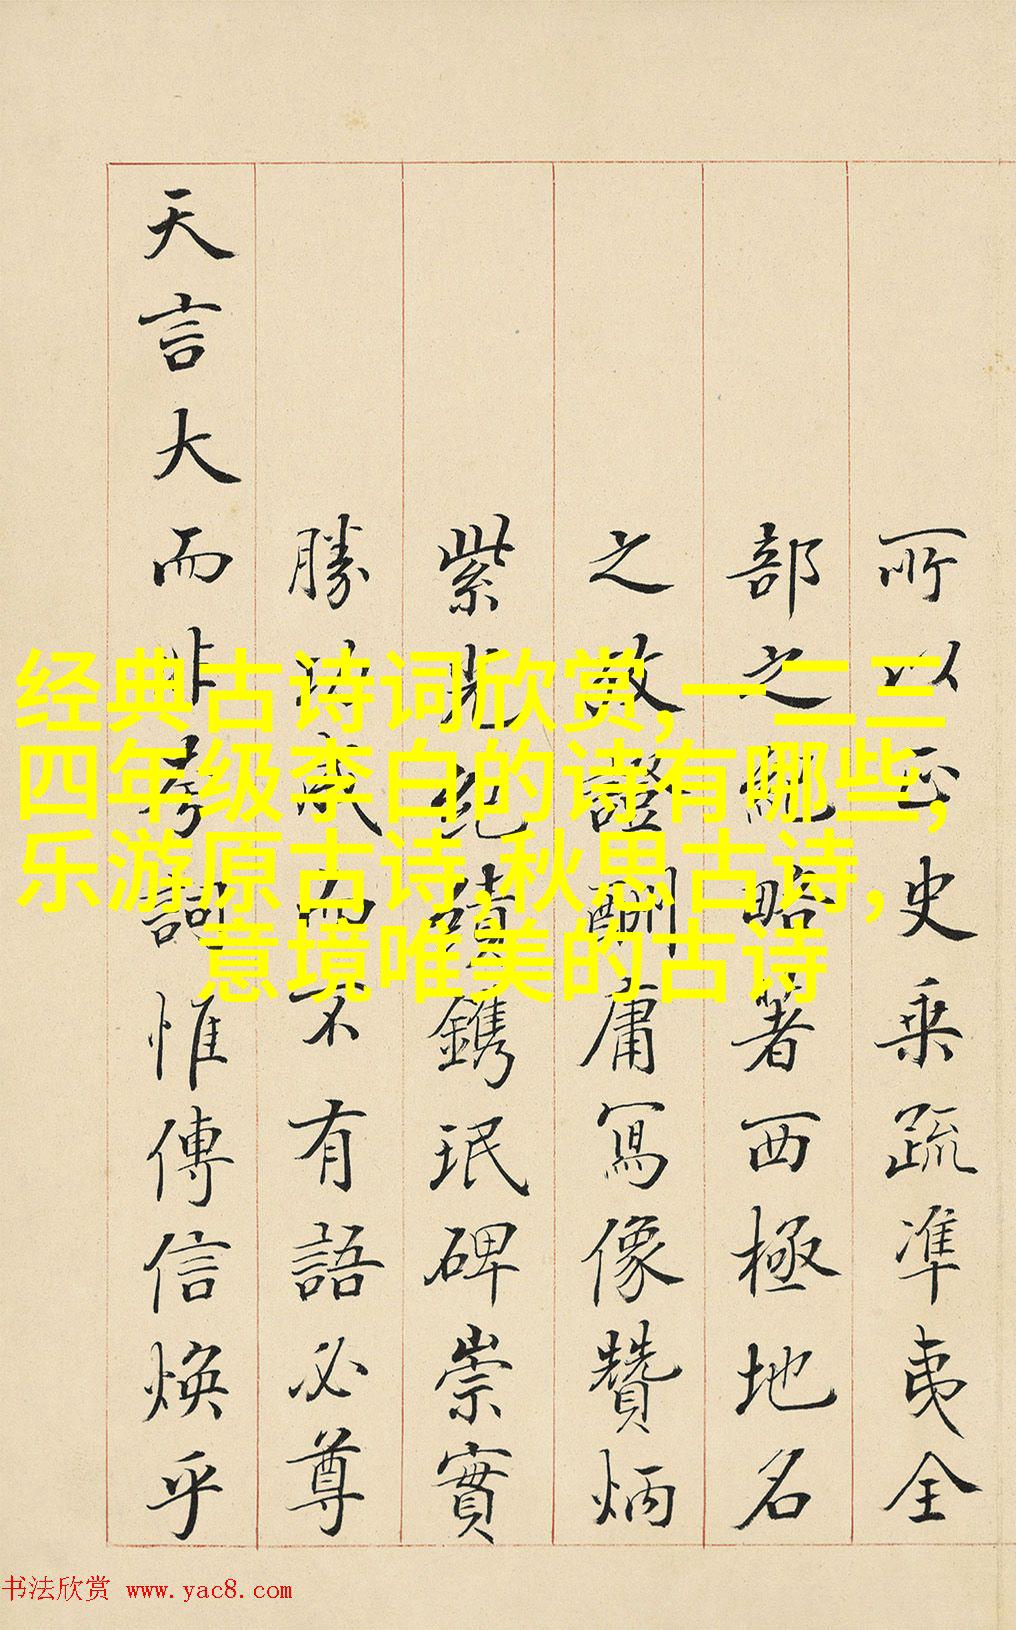 经典古诗词欣赏,一二三
四年级李白的诗有哪些,
乐游原古诗,秋思古诗,
意境唯美的古诗
所以正史乘疏準夷全
部之略著西極地名
之故證酬庸寫像贊炳
紫光紀績鐫珉碑崇實
勝功成而不有語必尊
天言大而非夸詞惟傳信煥乎
书法欣赏 www.yac8.com